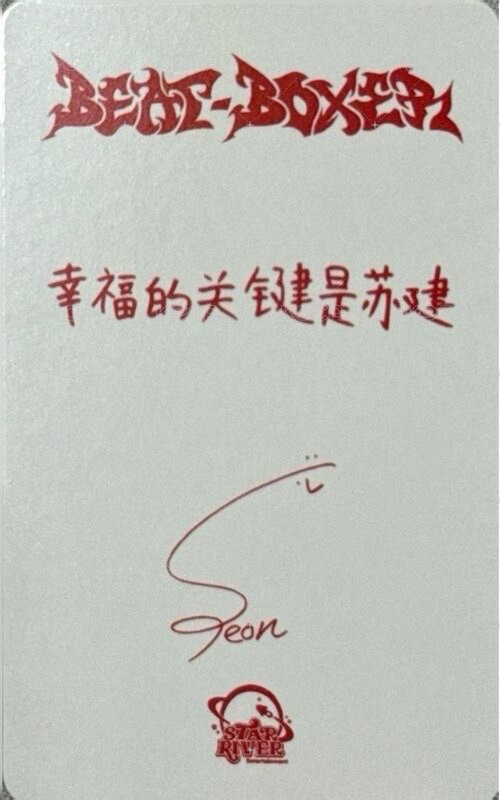 BEAT-BOXER
幸福的关键是苏建
Seon
STAR
RIVER